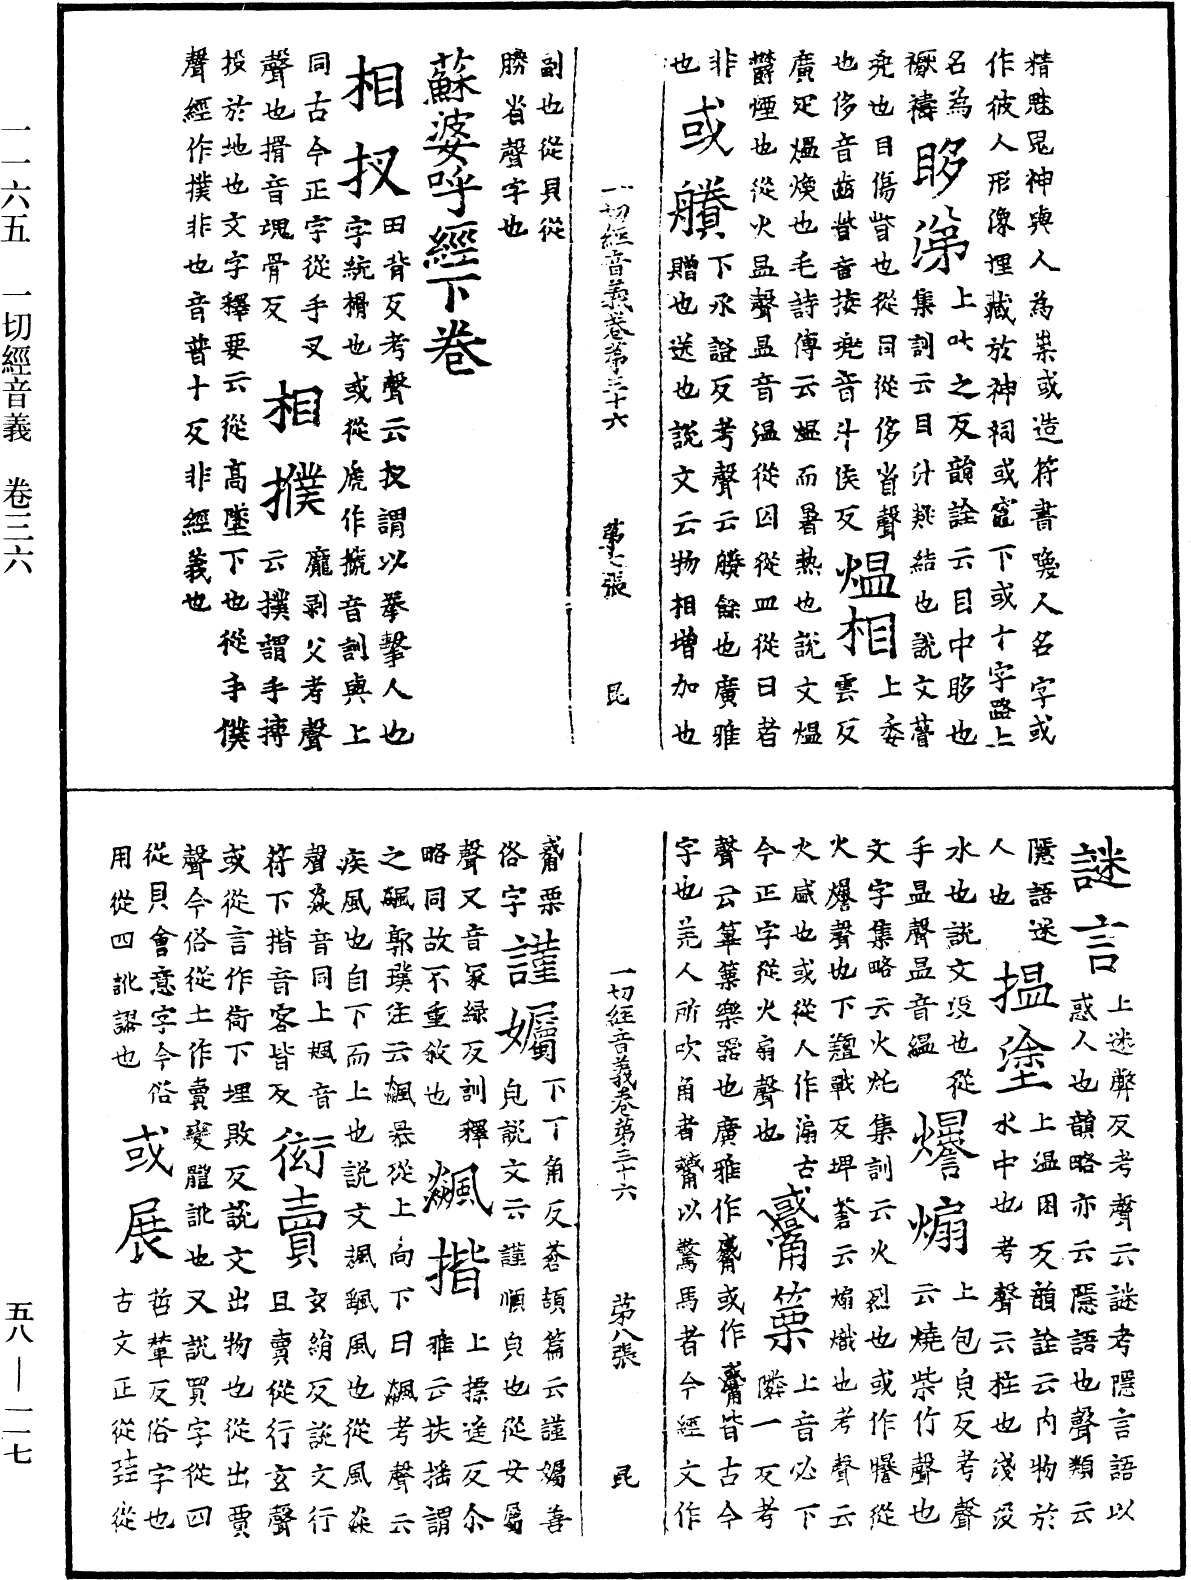 一一六五　一切經音義　卷三六
五八—一一七
精魅鬼神與人為祟或造符書喚人名字或
作彼人形像埋藏於神祠或竈下或十字路上
名為
厭禱
眵㳶
上叱之反韻詮云目中眵也
集訓云目汁凝結也說文瞢
兠也目傷眥也從目從侈省聲
也侈音齒眥音㨒兠音斗侯反
熅相
上委
雲反
廣疋熅煗也毛詩傳云熅而暑熱也說文熅
鬱煙也從火昷聲昷音溫從囚從皿從日者
非
也
或賸
下氶證反考聲云賸餘也廣雅
贈也送也說文云物相增加也
一切經音義卷第三十六　第七張　昆
副也從貝從
勝省聲字也
蘇婆呼經下卷
相扠
田皆反考聲云扠謂以拳擊人也
字統㨪也或從虒作搋音訓與上
同古今正字從手叉
聲也搰音瑰骨反
相撲
龐剥父考聲
云撲謂手搏
投於地也文字釋要云從高墜下也從手僕
聲經作撲非也音普卜反非經義也
謎言
上迷弊反考聲云謎考隱言語以
惑人也韻略亦云隱語也聲類云
隱語迷
人也
搵塗
上溫困反韻詮云內物於
水中也考聲云拄也淺沒
水也說文沒也從
手昷聲昷音縕
爆煽
上包皃反考聲
云燒柴竹聲也
文字集略云火灹集訓云火烈也或作㬥從
火爆聲也下羶戰反埤蒼云煽熾也考聲云
火盛也或從人作傓古
今正字從火扇聲也
觱篥
上音必下
隣一反考
聲云篳篥樂器也廣雅作觱或作觱皆古今
字也羌人所吹角者觱以驚馬者今經文作
一切經音義卷第三十六　第八張　昆
觱栗
俗字
謹孎
下丁角反蒼頡篇云謹孎善
皃說文云謹順皃也從女屬
聲又音冢緑反訓釋
略同故不重敘也
飆揩
上摽遙反尒
雅云扶搖謂
之飆郭璞注云飆暴從上向下曰飆考聲云
疾風也自下而上也說文颯飆風也從風猋
聲猋音同上颯音
符下揩音客皆反
衒賣
玄絹反說文行
且賣從行玄聲
或從言作衒下埋敗反說文出物也從出買
聲今俗從土作賣變體訛也又說買字從四
從貝會意字今俗
用從四訛謬也
或展
哲輦反俗字也
古文正從㠭從